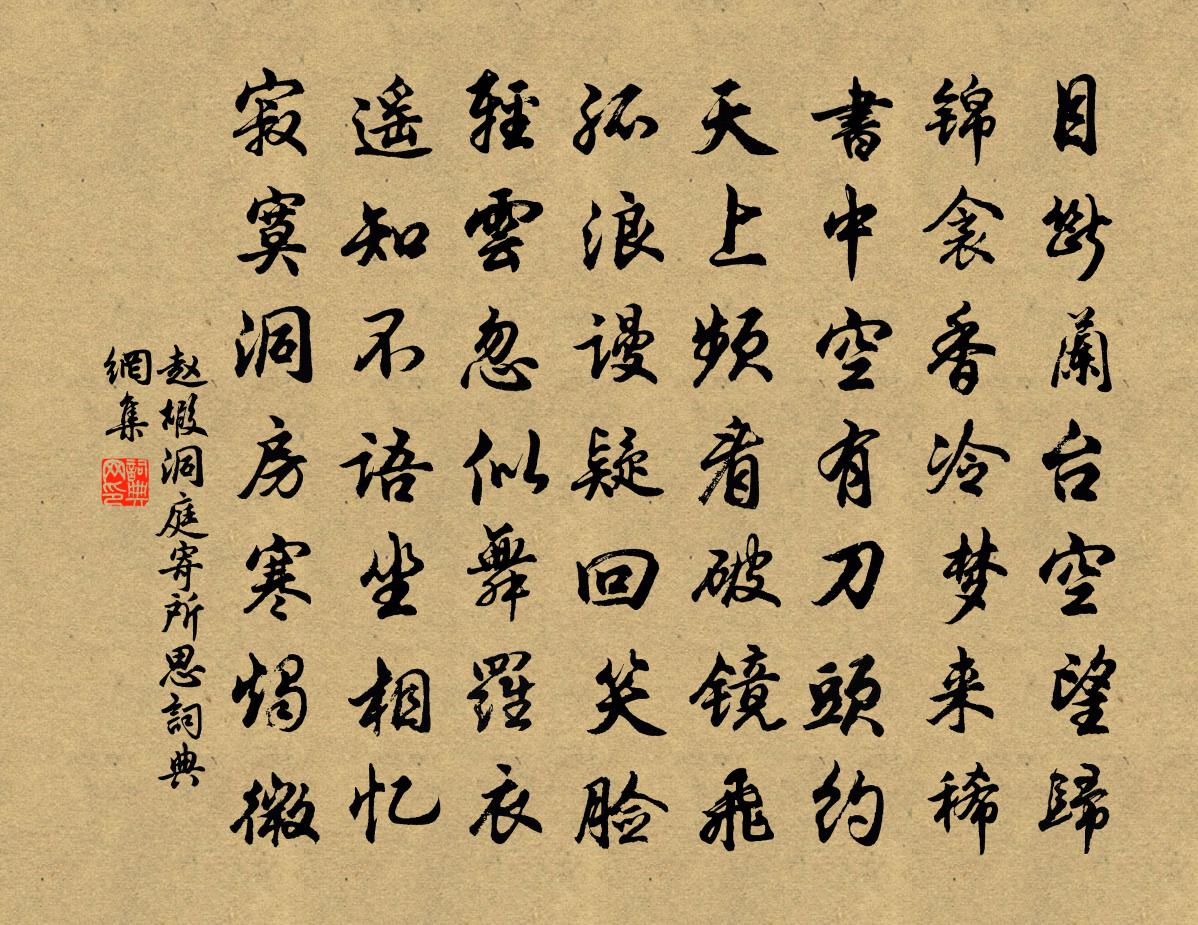 目斷蘭台空望歸
锦衾香冷梦来稀
書中空有刀頭约
天上频看破镜飛
孤浪谩疑回笑脸
輕雲忽似舞羅衣
遥知不語坐相忆
寂寞洞房寒烛微
赵嘏洞庭寄所思詞典
網集
詞典
网印